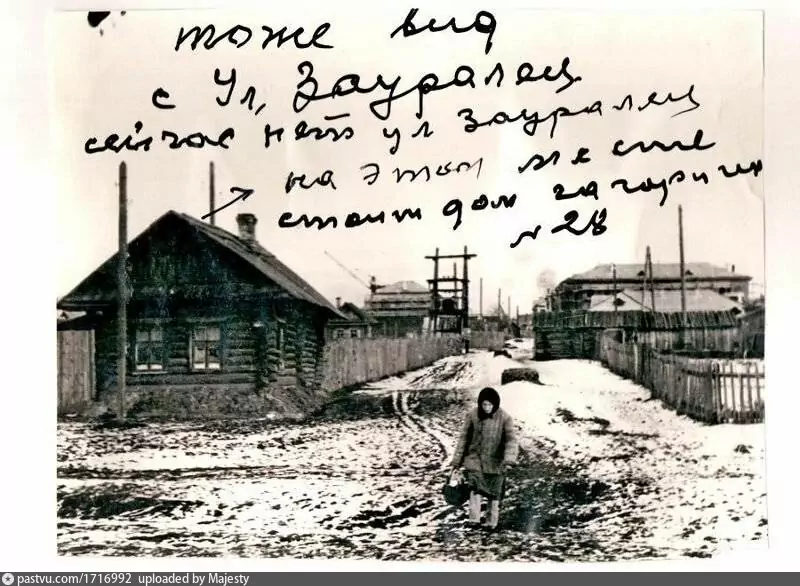 тоже вид
с Ул, Зауралец
сейчас нет ул Зауралец
на этом месте
стоит дом гагарина
№ 28
pastvu.com/1716992 uploaded by Majesty